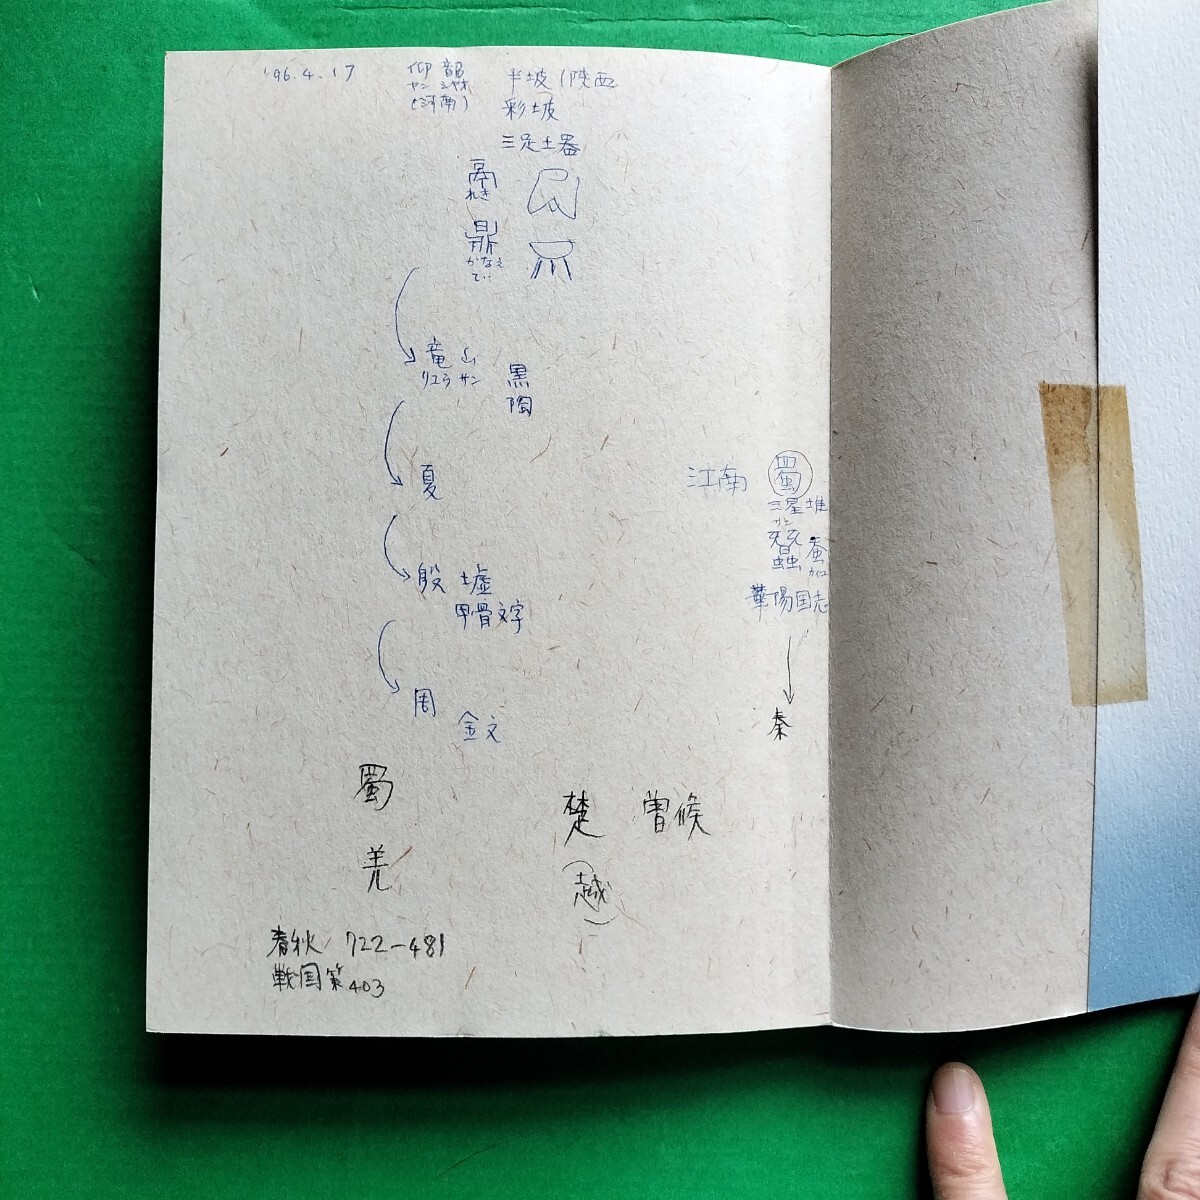 '96.4.17
仰韶
ヤンシャオ
(河南)
半坡(陝西
彩坡
三足土器
鬲
れき
鼎
かなえ
てい
竜山
リュウサン
黒
陶
夏
殷墟
甲骨文字
周
金文
江南
蜀
三星堆
サン
蠶蚕
カイコ
華陽国志
秦
蜀
羌
楚 曽候
(越)
春秋 722-481
戦国策403